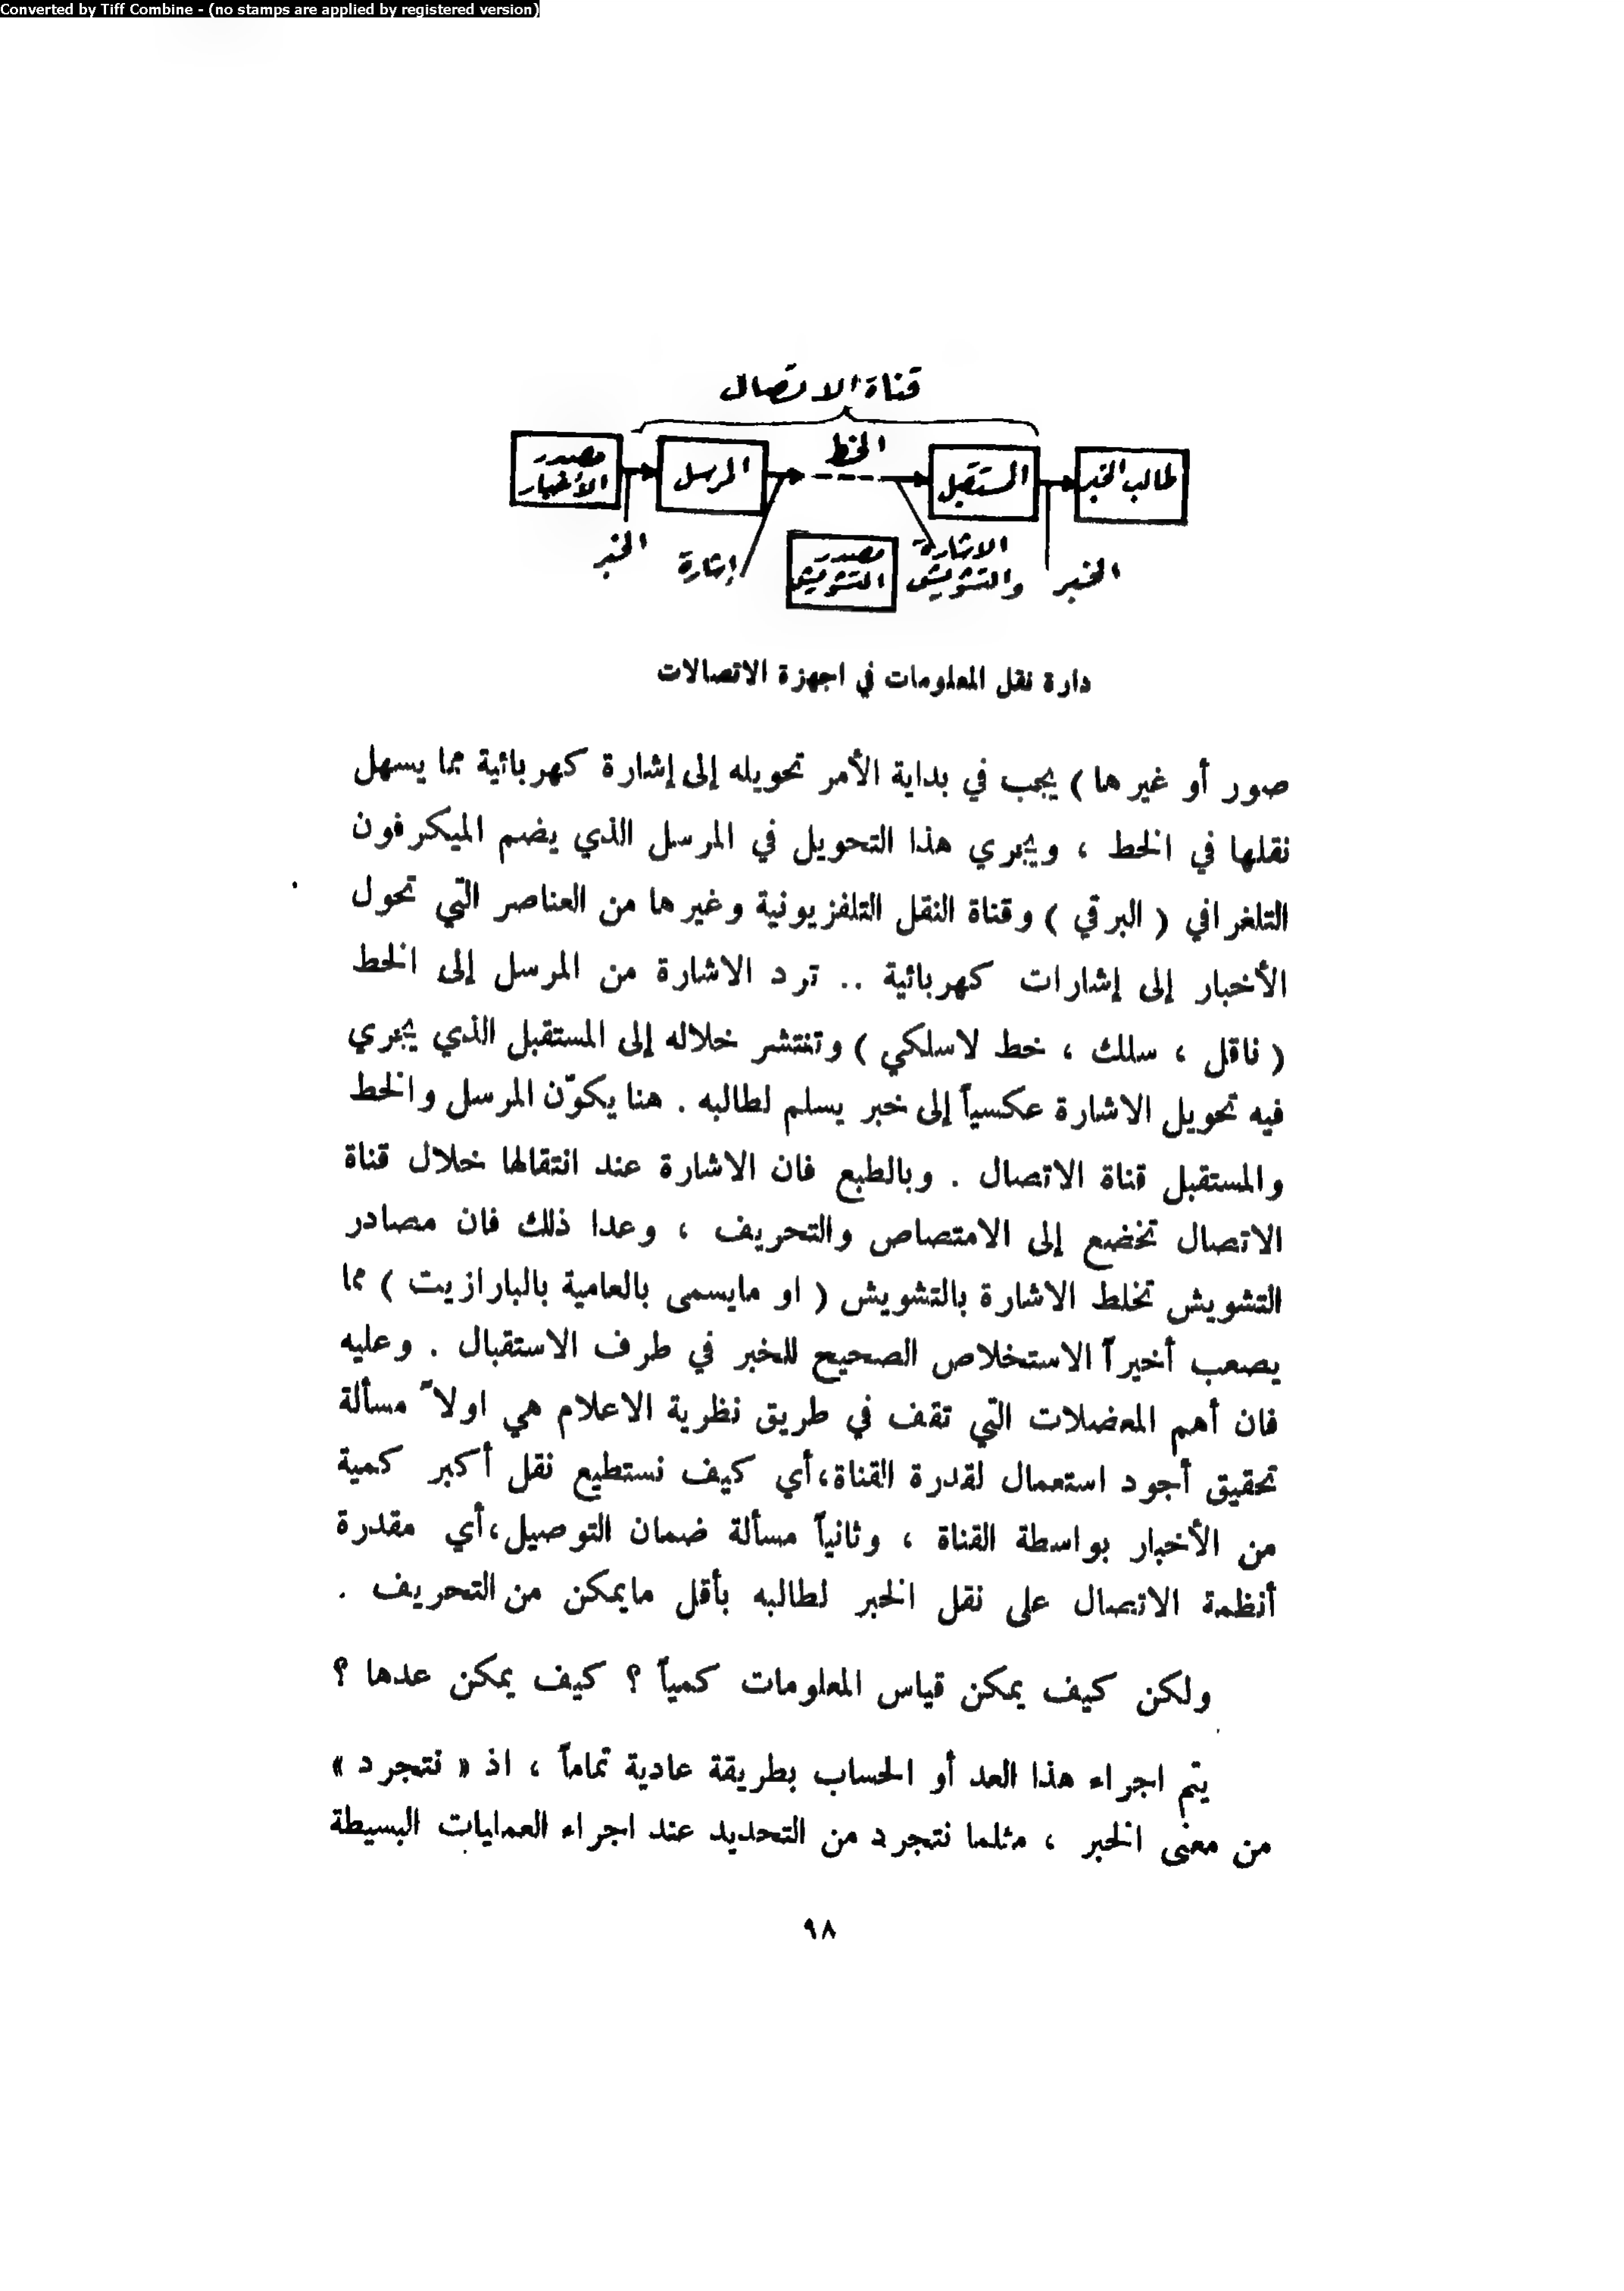 Converted by Tiff Combine - (no stamps are applied by registered version)
قناة الاتصال
مصدر الأخبار
المرسل
الخط
المستقبل
طالب الخبر
الخبر
إشارة
مصدر التشويش
الاشارة والتشويش
الخبر
دارة نقل المعلومات في اجهزة الاتصالات
صور أو غيرها ) يجب في بداية الأمر تحويله إلى إشارة كهربائية مما يسهل
نقلها في الخط ، ويجري هذا التحويل في المرسل الذي يضم الميكرفون
التلغرافي ( البرقي ) وقناة النقل التلفزيونية وغيرها من العناصر التي تحول
الأخبار إلى إشارات كهربائية .. ترد الاشارة من المرسل إلى الخط
( ناقل ، سلك ، خط لاسلكي ) وتنتشر خلاله إلى المستقبل الذي يجري
فيه تحويل الاشارة عكسياً إلى خبر يسلم لطالبه . هنا يكوّن المرسل والخط
والمستقبل قناة الاتصال . وبالطبع فان الاشارة عند انتقالها خلال قناة
الاتصال تخضع إلى الامتصاص والتحريف ، وعدا ذلك فان مصادر
التشويش تخلط الاشارة بالتشويش ( او مايسمى بالعامية بالبارازيت ) مما
يصعب أخيراً الاستخلاص الصحيح للخبر في طرف الاستقبال . وعليه
فان أهم المعضلات التي تقف في طريق نظرية الاعلام هي اولاً مسألة
تحقيق أجود استعمال لقدرة القناة،أي كيف نستطيع نقل أكبر كمية
من الأخبار بواسطة القناة ، وثانياً مسألة ضمان التوصيل،أي مقدرة
أنظمة الاتصال على نقل الخبر لطالبه بأقل مايمكن من التحريف .
ولكن كيف يمكن قياس المعلومات كمياً ؟ كيف يمكن عدها ؟
يتم اجراء هذا العد أو الحساب بطريقة عادية تماماً ، اذ « نتجرد »
من معنى الخبر ، مثلما نتجرد من التحديد عند اجراء العمليات البسيطة
٩٨